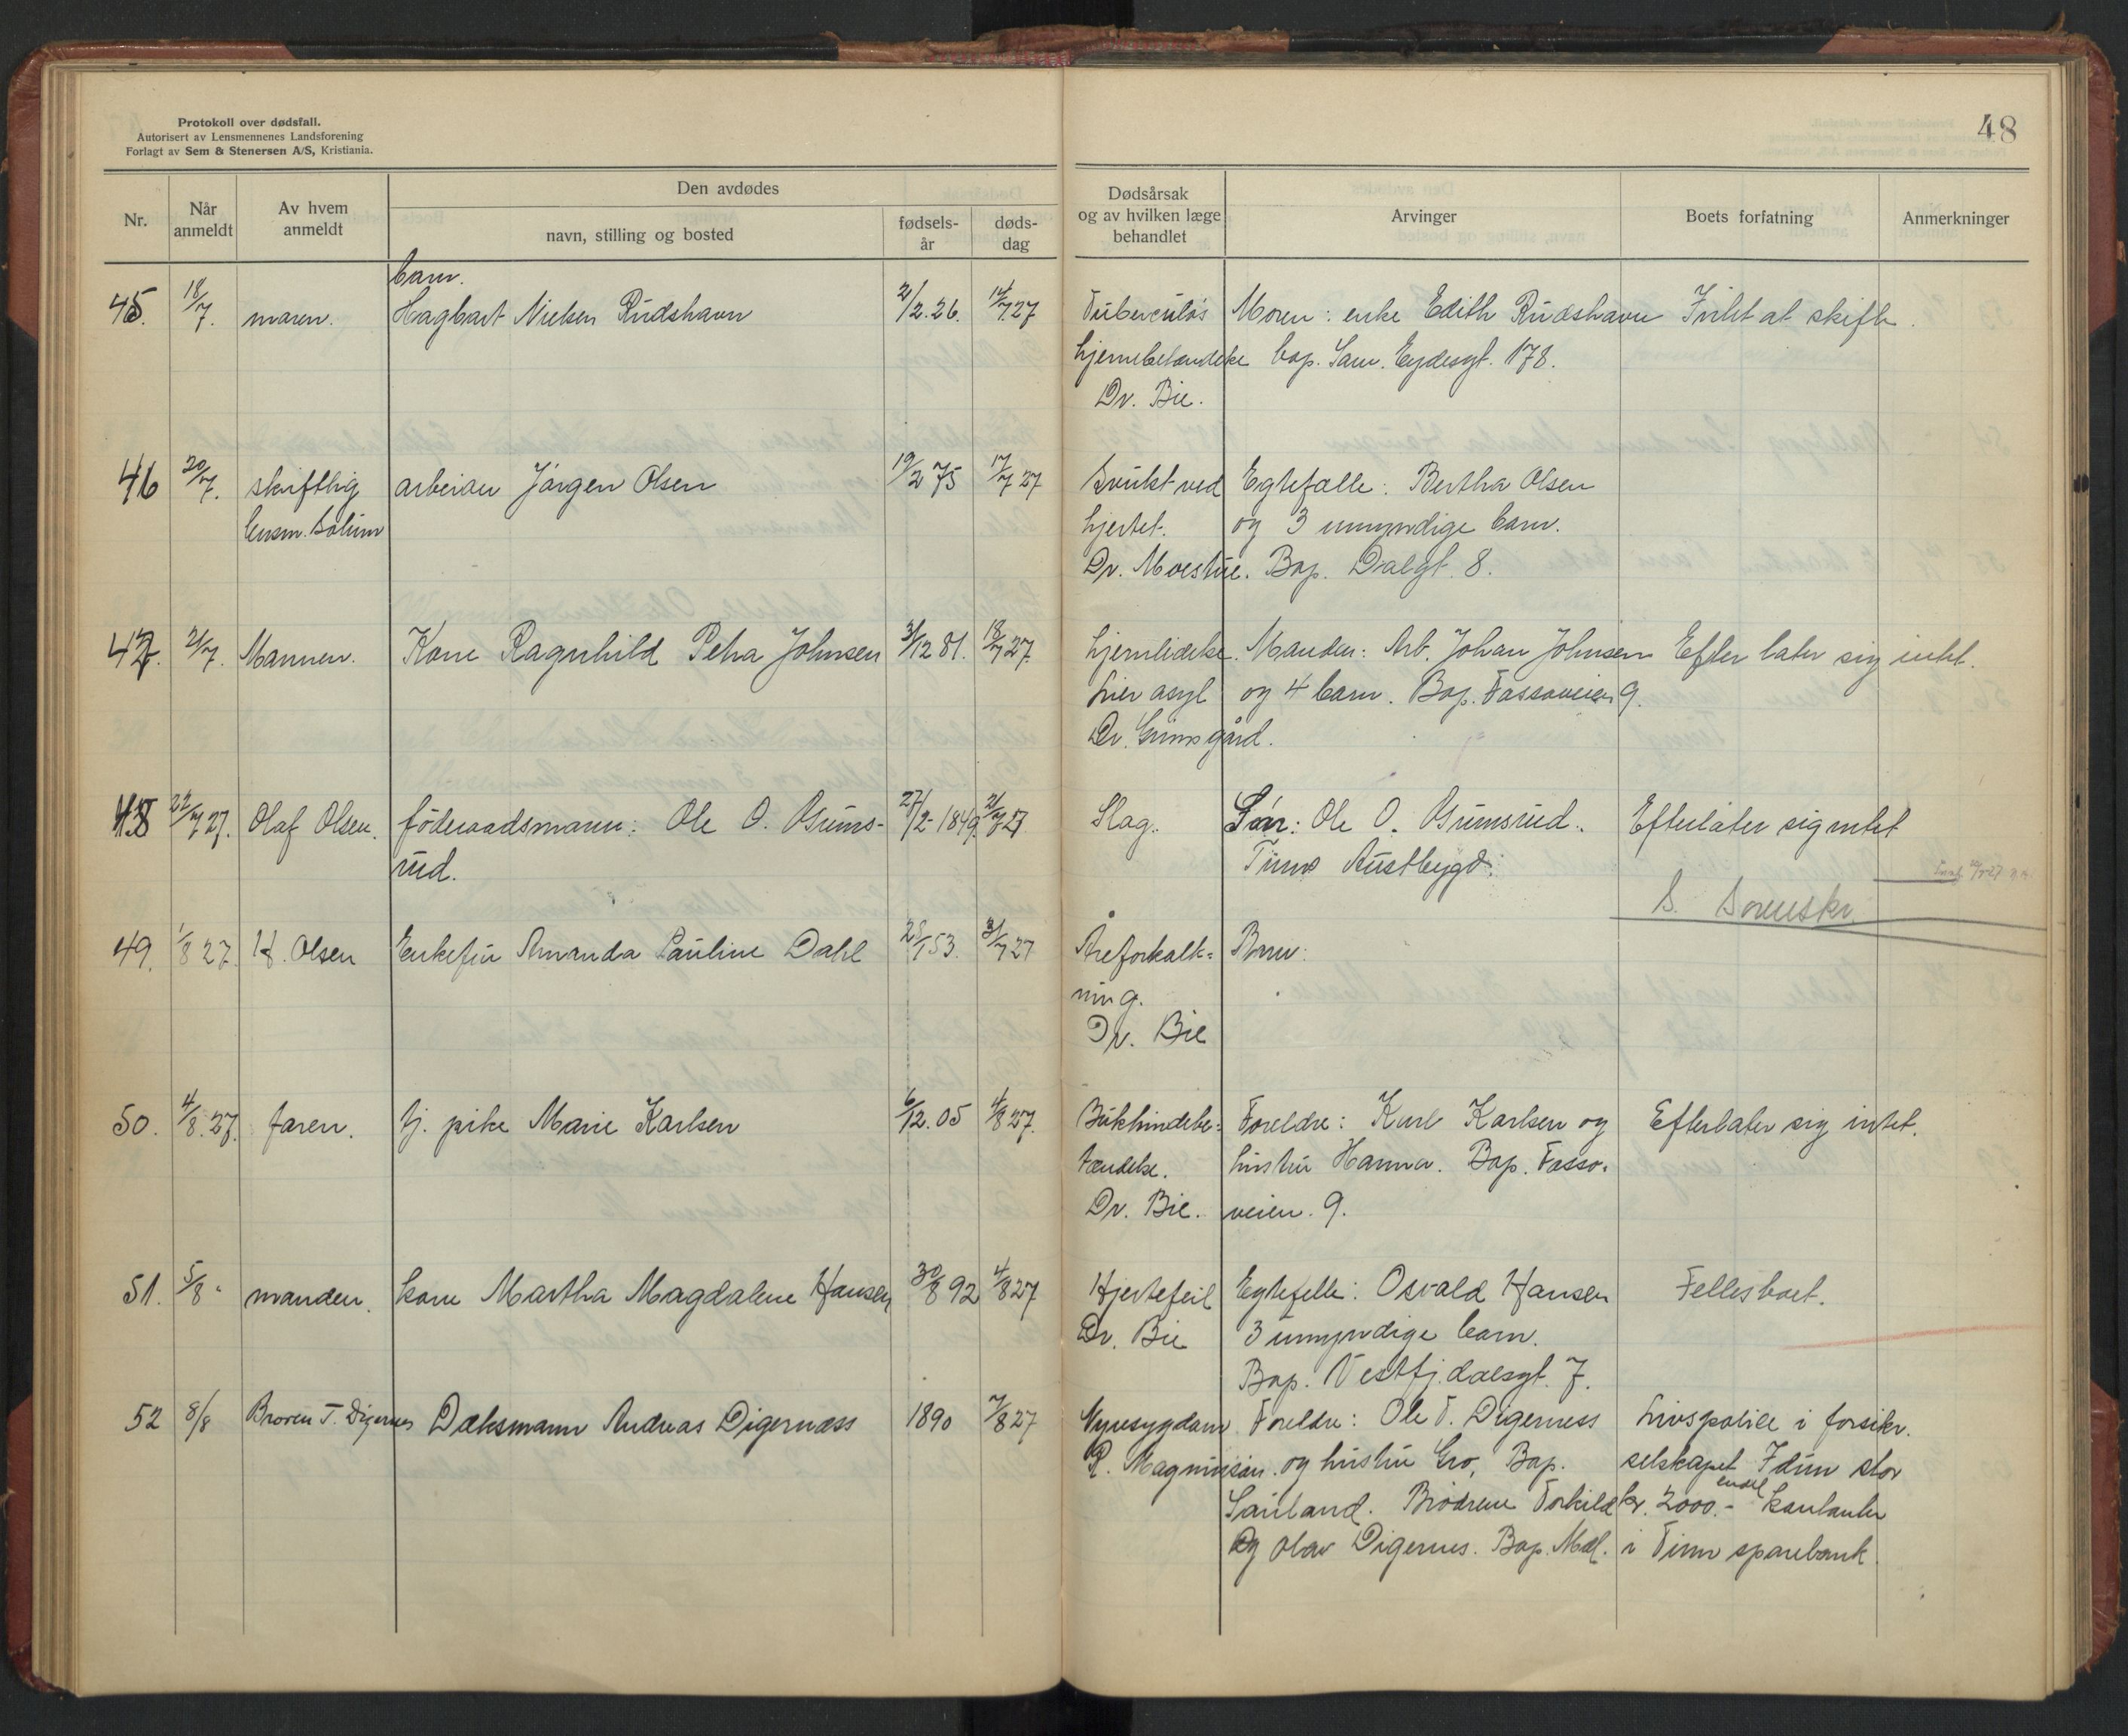 Protokoll over dødsfall.
Autorisert av Lensmennenes Landsforening
Forlagt av Sem & Stenersen A/S, Kristiania.
48
Nr.
Når anmeldt
Av hvem anmeldt
Den avdødes
navn, stilling og bosted
fødsels-år
døds-dag
Dødsårsak og av hvilken læge behandlet
Arvinger
Boets forfatning
Anmerkninger
barn.
45. 18/7. moren. Hagbart Nielsen Rudshavn 2/12.26. 14/7 27 Tuberculøs Moren: enke Edith Rudshavn Intet at skifte.
hjernebetændelse bop. Sam. Eydesgt. 178.
Dr. Bie.
46 20/7. skriftlig arbeider Jørgen Olsen 19/2 75 17/7 27 Svukt ved Egtefælle: Bertha Olsen
lensm. Solum hjertet. og 3 umyndige barn.
Dr. Moestue. Bop. Dalgt. 8.
47. 21/7. Mannen. Kone Ragnhild Petra Johnsen 3/12 81. 18/7 27. Hjernlidelse. Manden: Arb. Johan Johnsen Efterlater sig intet.
Lier asyl og 4 barn. Bop. Fassoveien 9.
Dr. Grimsgård.
48 22/7 27. Olaf Olsen. føderaadsmann: Ole O. Grums- 27/2-1849 21/7 27 Slag. Søn: Ole O. Grumsrud. Efterlater sig intet
rud. Tinns Austbygd.
S. Sorenskr.
49. 1/8 27. H. Olsen Enkefru Amanda Pauline Dahl 28/1 53. 31/7 27 Åreforkalk= Barn:
ning.
Dr. Bie
50. 4/8. 27. faren. tj. pike Marie Karlsen 6/12. 05 4/8 27. Bukhindebe= Foreldre: Karl Karlsen og Efterlater sig intet.
tændelse. hustru Hanna. Bop. Fasso-
Dr. Bie. veien. 9.
51. 5/8 " manden. kone Martha Magdalene Hansen 30/8 92 4/8 27 Hjertefeil Egtefelle: Osvald Hansen Fellesboet.
Dr. Bie 3 umyndige barn.
Bop. Vestfj.dalsgt. 7.
52 8/8 Broren T. Digernes Dæksmann Andreas Digernæss 1890 7/8 27 Nyresygdom Foreldre: Ole T. Digerness Livspolise i forsikr.
R. Magnusson. og hustru Gro, Bop. selskapet Idun stor
Sauland. Brødrene Torkild kr. 2000.- endel kontanter
Og Olav Digernes. Bop. Mæl. i Tinn sparebank.